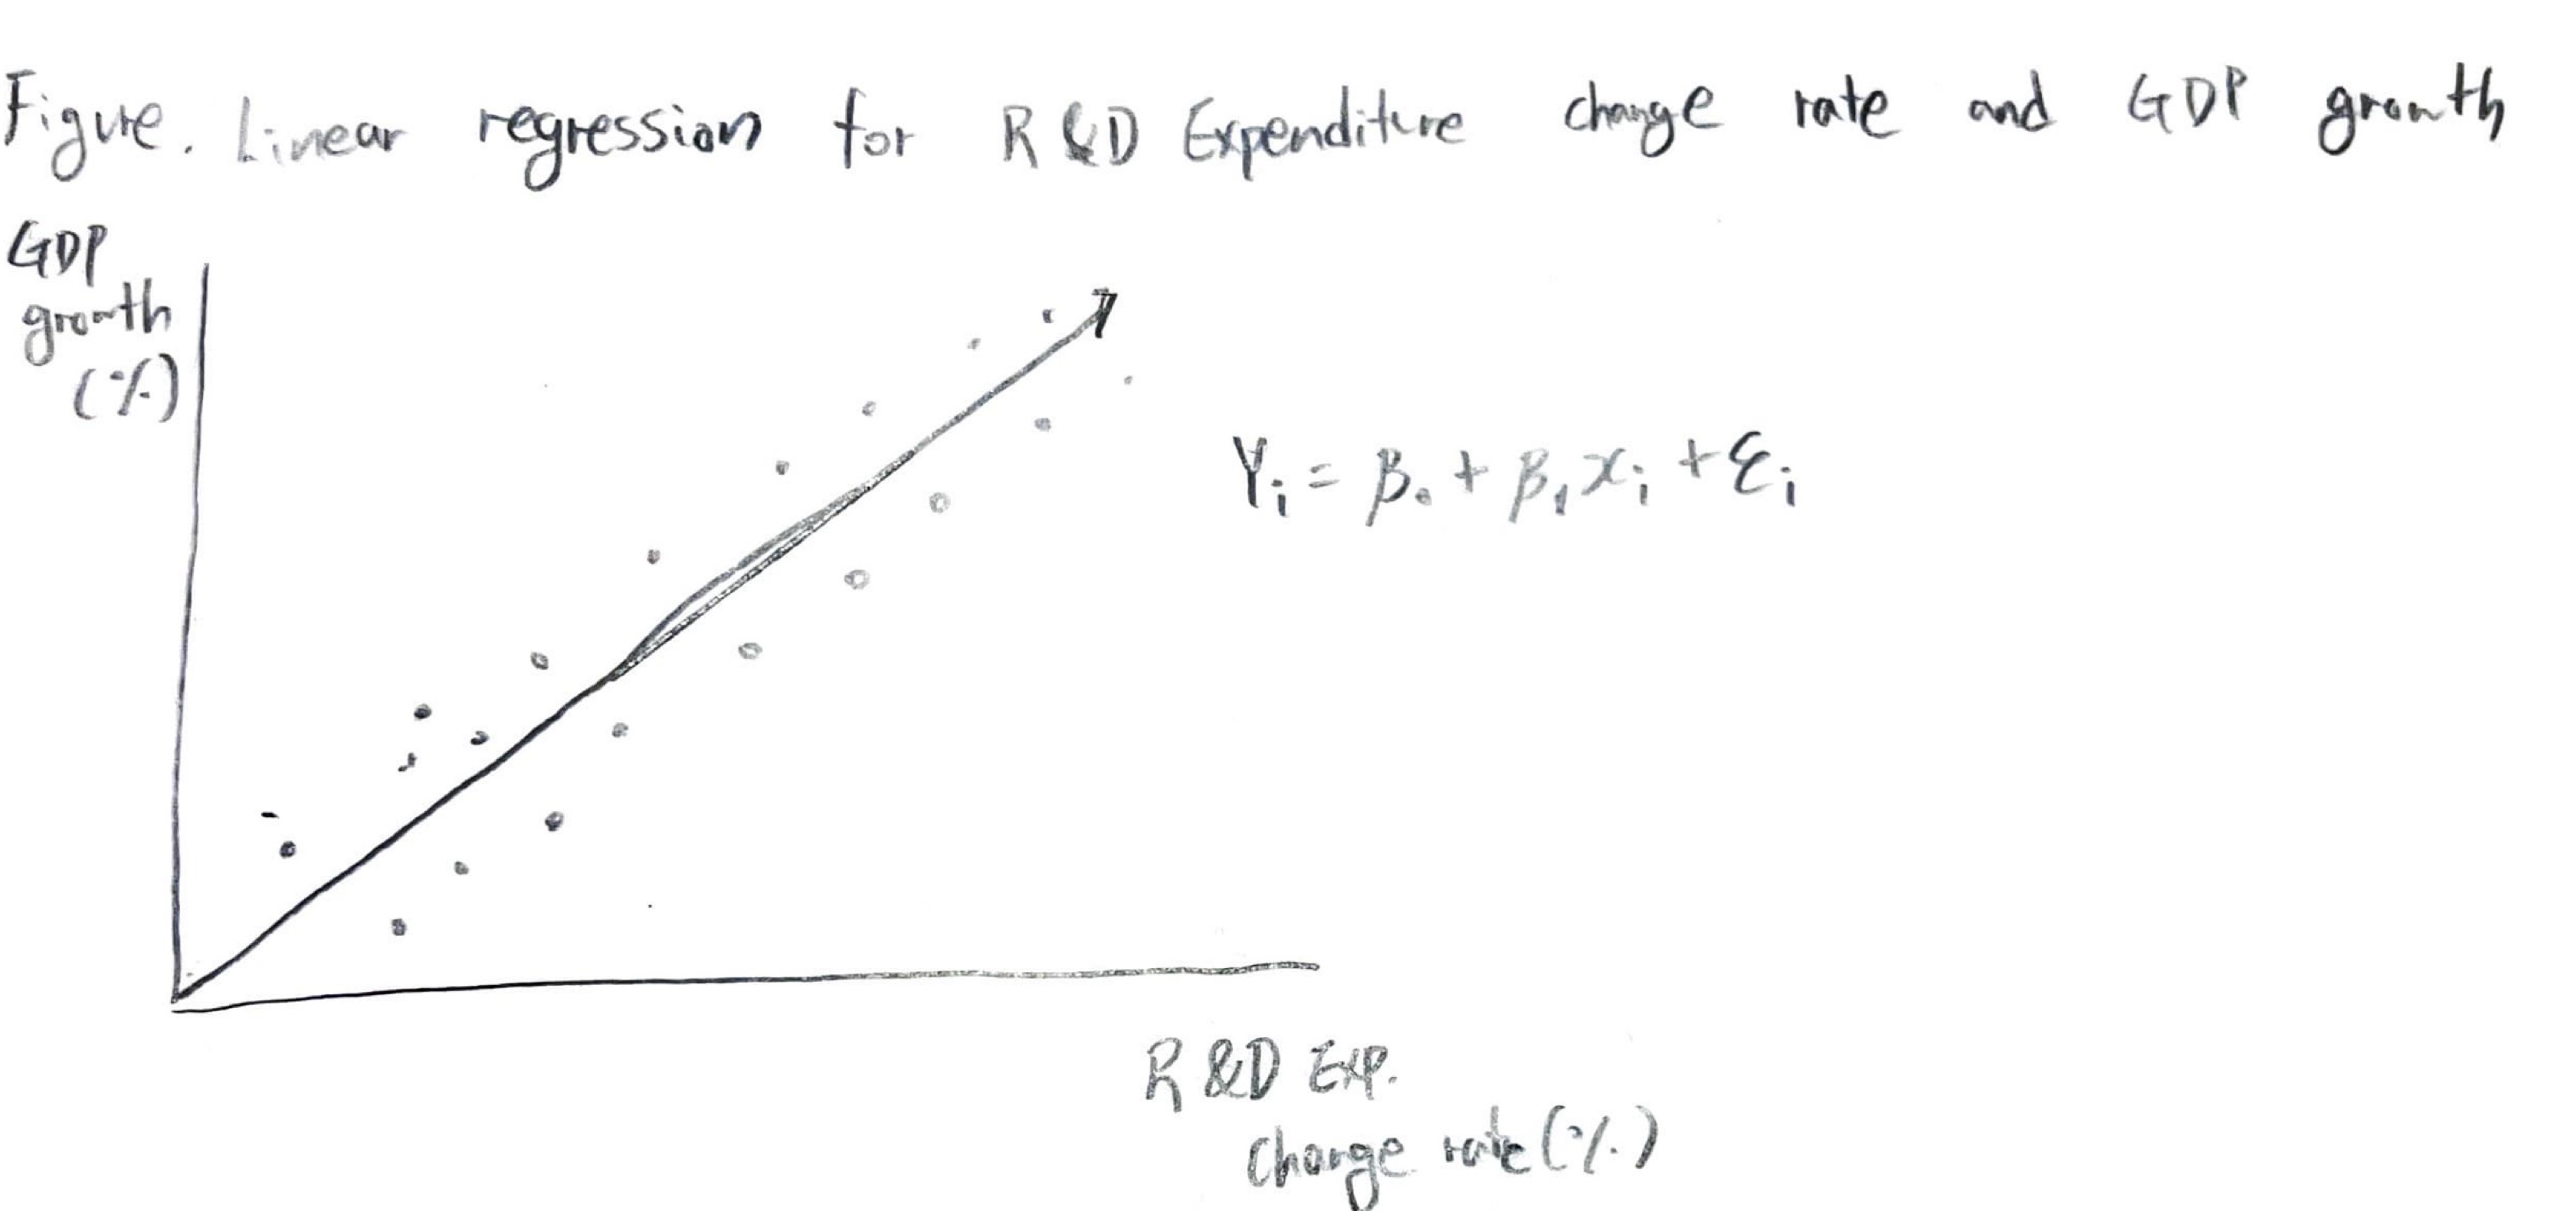 Figure. Linear regression for R&D Expenditure change rate and GDP growth
GDP
growth
(%)
Yi = β0 + β1xi + εi
R&D Exp.
change rate (%)